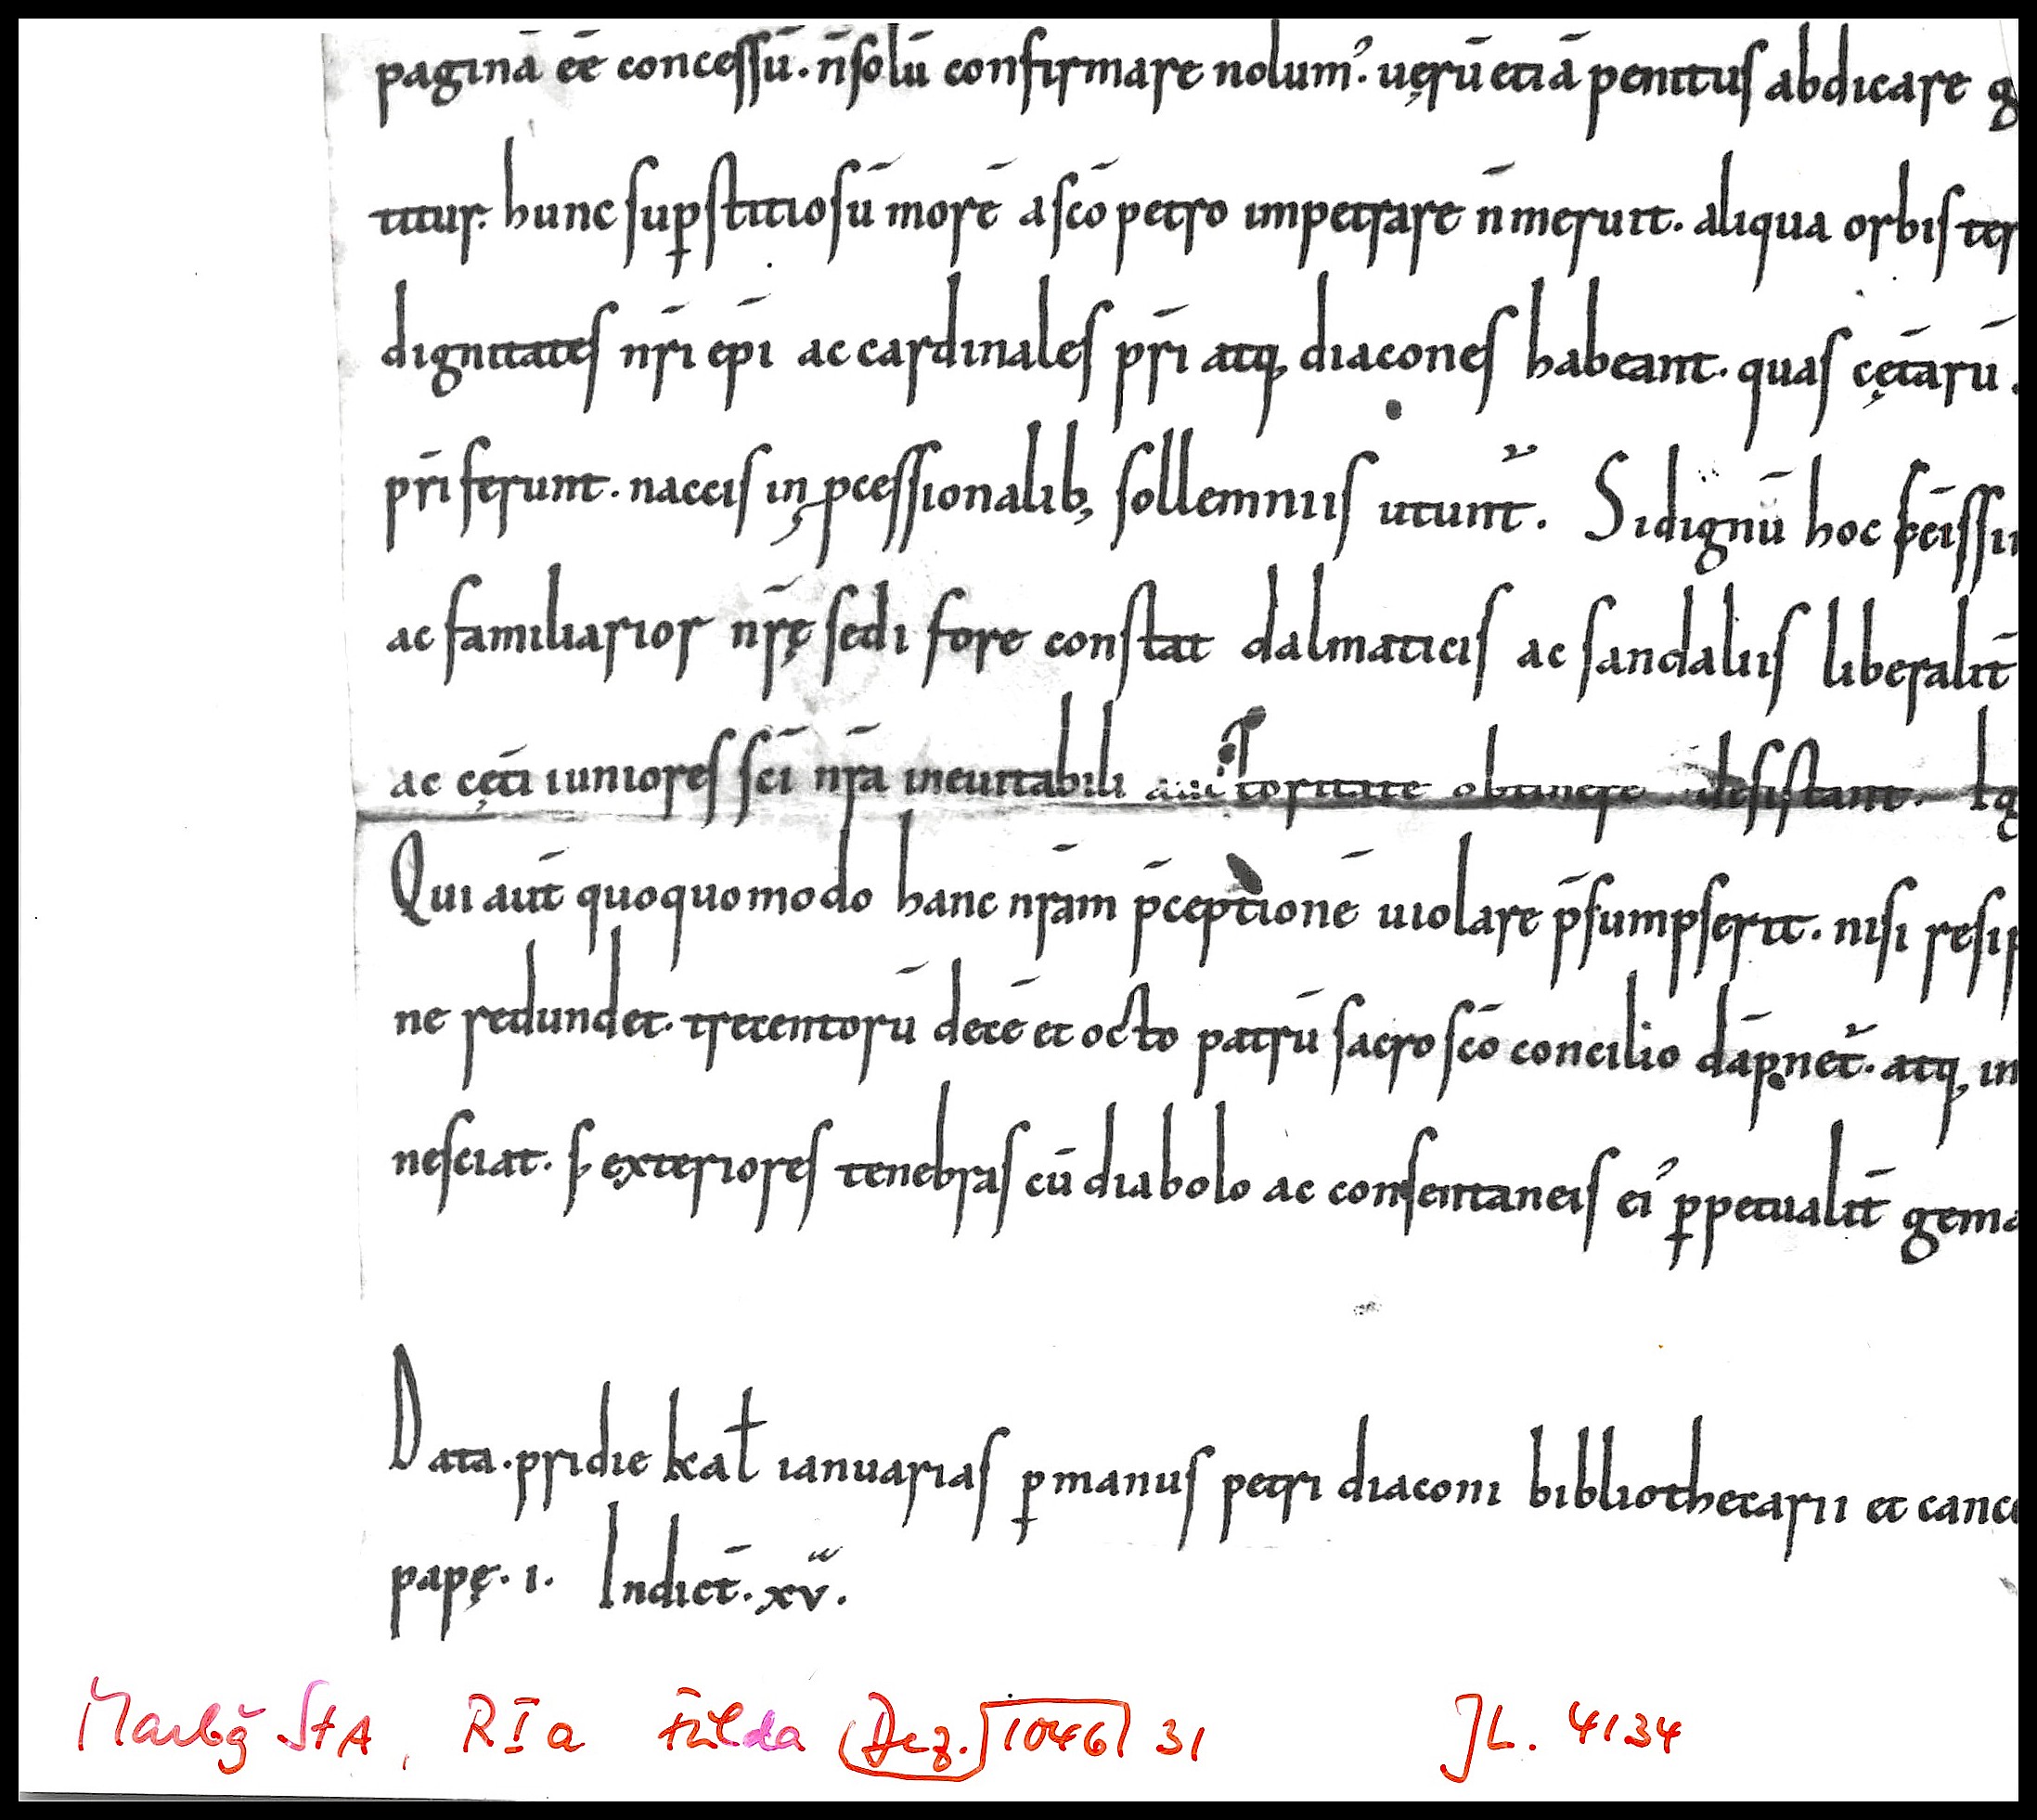 paginā eē concessū. n̄ solū confirmare nolumꝰ. uęrū etiā penitus abdicare
titur. hunc suꝑstitiosū morē a sc̄o petro impetrare n̄ meruit. aliqua orbis ter
dignitates nr̄i ep̄i ac cardinales pr̄i atq; diacones habeant. quas cęt̄arū.
pr̄i ferunt. nac eis in ꝓcessionalib; sollemniis utunt᷑. Si dignū hoc
ac familiarior nr̄ę sedi fore constat dalmaticis ac sandaliis liberalit̄
ac cęt̄i iuniores sc̄i nr̄a ineuitabili auctoritate obtinere desistant. Ig
Qui aūt quoquomodo hanc nr̄am p̄ceptionē uiolare p̄sumpserit. nisi resip
ne redundet. trecentorū decē et octo patrū sacro sc̄o concilio dāpnet᷑. atq; in
nesciat. s; exteriores tenebras cū diabolo ac consentaneis eiꝰ ꝑpetualit̄ gema
Data. pridie kal̄ ianuarias ꝑ manus petri diaconi bibliothecarii et cance
papę. i. Indict̄. xv.
Marbg StA, R I a Fulda (Dez.) 1046 31 JL. 4134